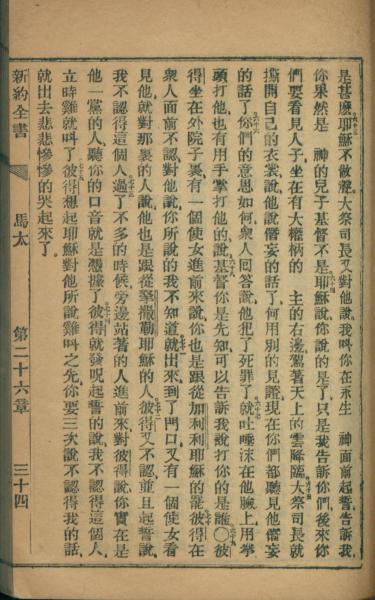 是甚麽耶穌不做聲大祭司長又對他說我叫你在永生　神面前起誓告訴我
你果然是　神的兒子基督不是耶穌說你說的是了只是我告訴你們後來你
們要看見人子坐在有大權柄的　主的右邊駕著天上的雲降臨大祭司長就
撕開自己的衣裳說他說僭妄的話了何用別的見證現在你們都聽見他僭妄
的話了你們的意思如何衆人回答說他犯了死罪了就吐唾沫在他臉上用拳
頭打他也有用手掌打他的說基督你是先知可以告訴我說打你的是誰〇彼
得坐在外院子裏有一個使女進前來說你也是跟從加利利耶穌的罷彼得在
衆人面前不認對他說你所說的我不知道就出來到了門口又有一個使女看
見他就對那裏的人說他也是跟從拏撒勒耶穌的人彼得又不認並且起誓說
我不認得這個人過了不多的時候旁邊站著的人進前來對彼得說你實在是
他一黨的人聽你的口音就是憑據了彼得就發呪起誓的說我不認得這個人
立時雞就叫了彼得想起耶穌對他所說雞叫之先你要三次說不認得我的話
就出去悲悲慘慘的哭起來了
新約全書　馬太　第二十六章　三十四